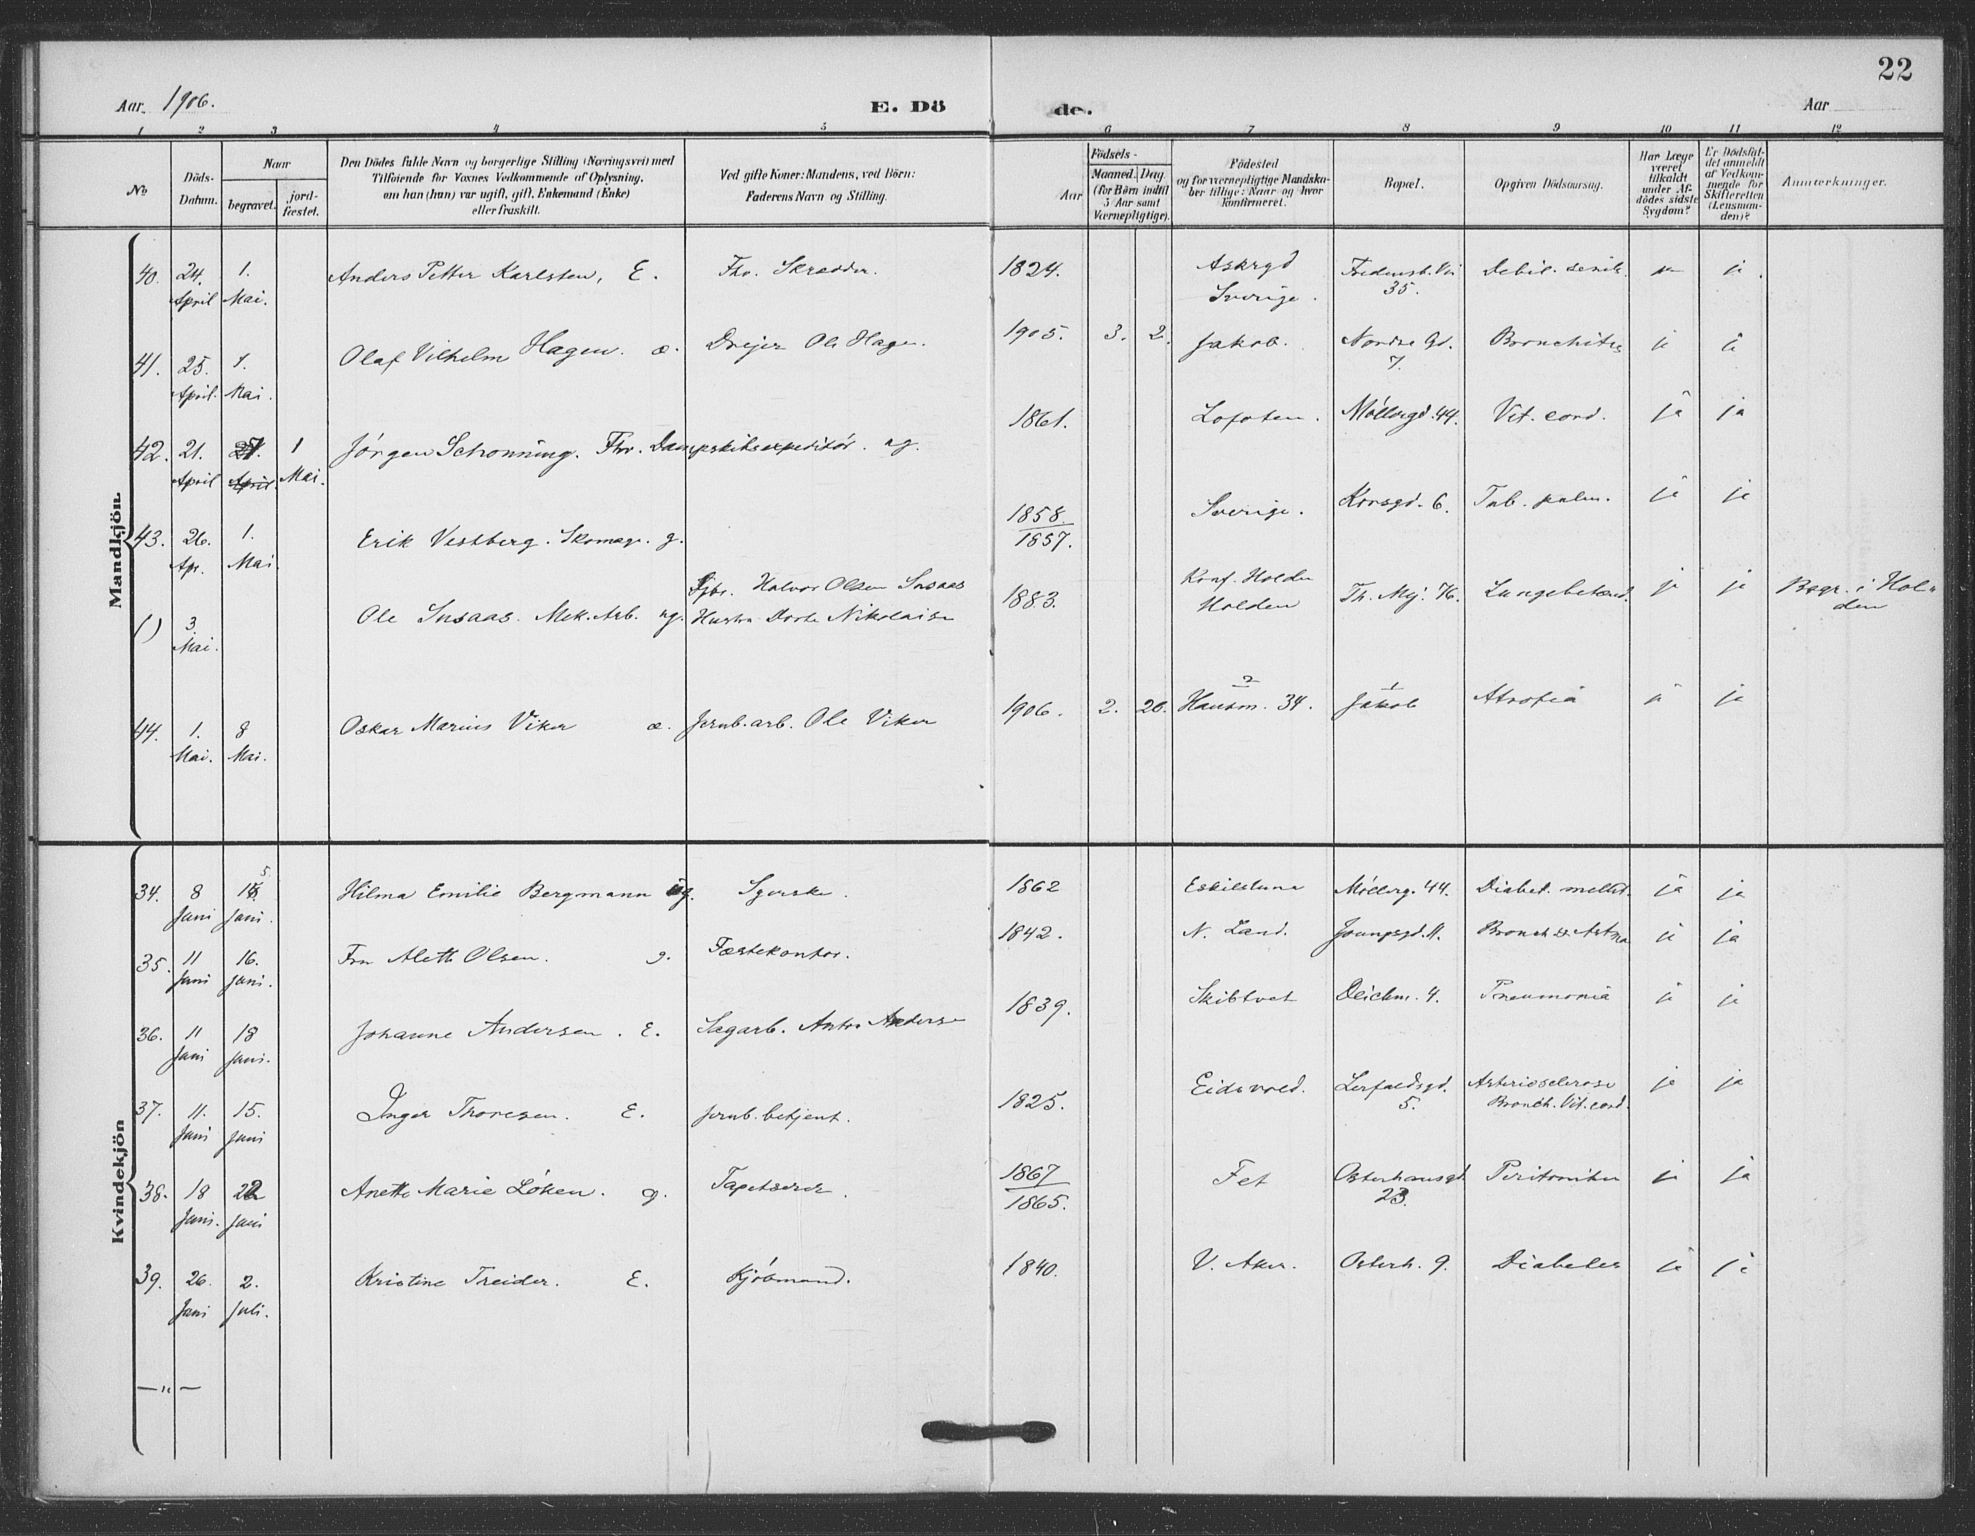 22
Aar 1906. E. Dö de. Aar
1 2 3 4 5 6 7 8 9 10 11 12
No
Döds-Datum.
Naar
begravet.
jord-fæstet.
Den Dödes fulde Navn og borgerlige Stilling (Næringsvei) med
Tilföiende for Voxnes Vedkommende af Oplysning,
om han (hun) var ugift, gift, Enkemand (Enke)
eller fraskilt.
Ved gifte Koner: Mandens, ved Börn:
Faderens Navn og Stilling.
Födsels-
Aar
Maaned. Dag.
(for Börn indtil
5 Aar samt
Værnepligtige).
Födested
og for værnepligtige Mandska-
ber tillige: Naar og hvor
konfirmeret.
Bopæl.
Opgiven Dödsaarsag.
Har Læge
været
tilkaldt
under Af-
dödes sidste
Sygdom?
Er Dödsfal-
det anmeldt
af Vedkom-
mende for
Skifteretten
(Lensman-
den)?
Anmærkninger.
Mandkjön
40. 24. April 1. Mai. Anders Petter Karlsten, E. Fhv. Skrædder. 1824. Sverige. Fredensb. Vei 35. Debil. senil. ja.
41. 25. April. 1. Mai. Olaf Vilhelm Hagen. æ. Drejer Ole Hagen. 1905. 3. 2. Jakob. Nordre Gd. 7. Bronchites ja ja
42. 21. April 27. April. 1 Mai. Jörgen Schonning. Fhv. Dampskibsexpeditör. ug. 1861. Lofoten. Möllergd. 44. Vit. cord. ja ja
43. 26. Apr. 1. Mai. Erik Vestberg. Skomag. g. 1858. 1857. Sverige. Korsgd. 6. Tub. pulm. ja ja
( ) 3 Mai. Ole Snsaas. Mek. Arb. ug. Gjbr. Halvor Olsen Snsaas Hustru Dorte Nikolaisen 1883. Konf. Holden Holden Th. Mj. 76. Lungebetænd. ja ja Begr. i Hol-den
44. 1. Mai. 8 Mai. Oskar Marius Viker æ. Jernb. arb. Ole Viker 1906. 2. 20. Hausm. 34. Jakob Atrofia ja ja
Kvindekjön
34. 8 Juni 15 Juni. Hilma Emilie Bergmann ug. Syerske. 1862 Eskilstuna Möllerg. 44. Diabet. mellit. ja ja
35. 11 Juni 16. Juni. Fru Aleth Olsen. g. Fæstekontor. 1842. N. Land. Youngsgd. 11. Bronch. & Astma ja ja
36. 11 Juni 18 Juni. Johanne Andersen. E. Sagarb. Anton Andersen 1839. Skibtvet Deichm. 4. Pneumonia ja ja
37. 11. Juni 15. Juni Inger Thoresen. E. Jernb. betjent. 1825. Eidsvold. Lerfaldsgd. 5. Arteriosclerose Bronch. Vit. cord. ja ja
38. 18 Juni. 22 Juni Anette Marie Löken. g. Tapetserer. 1867 1865. Fet Osterhausgd. 23. Peritonitis ja ja
39. 26. Juni 2. Juli. Kristine Treider. E. Kjöbmand. 1840. V. Aker. Osterh. 9. Diabetes ja ja
— " —